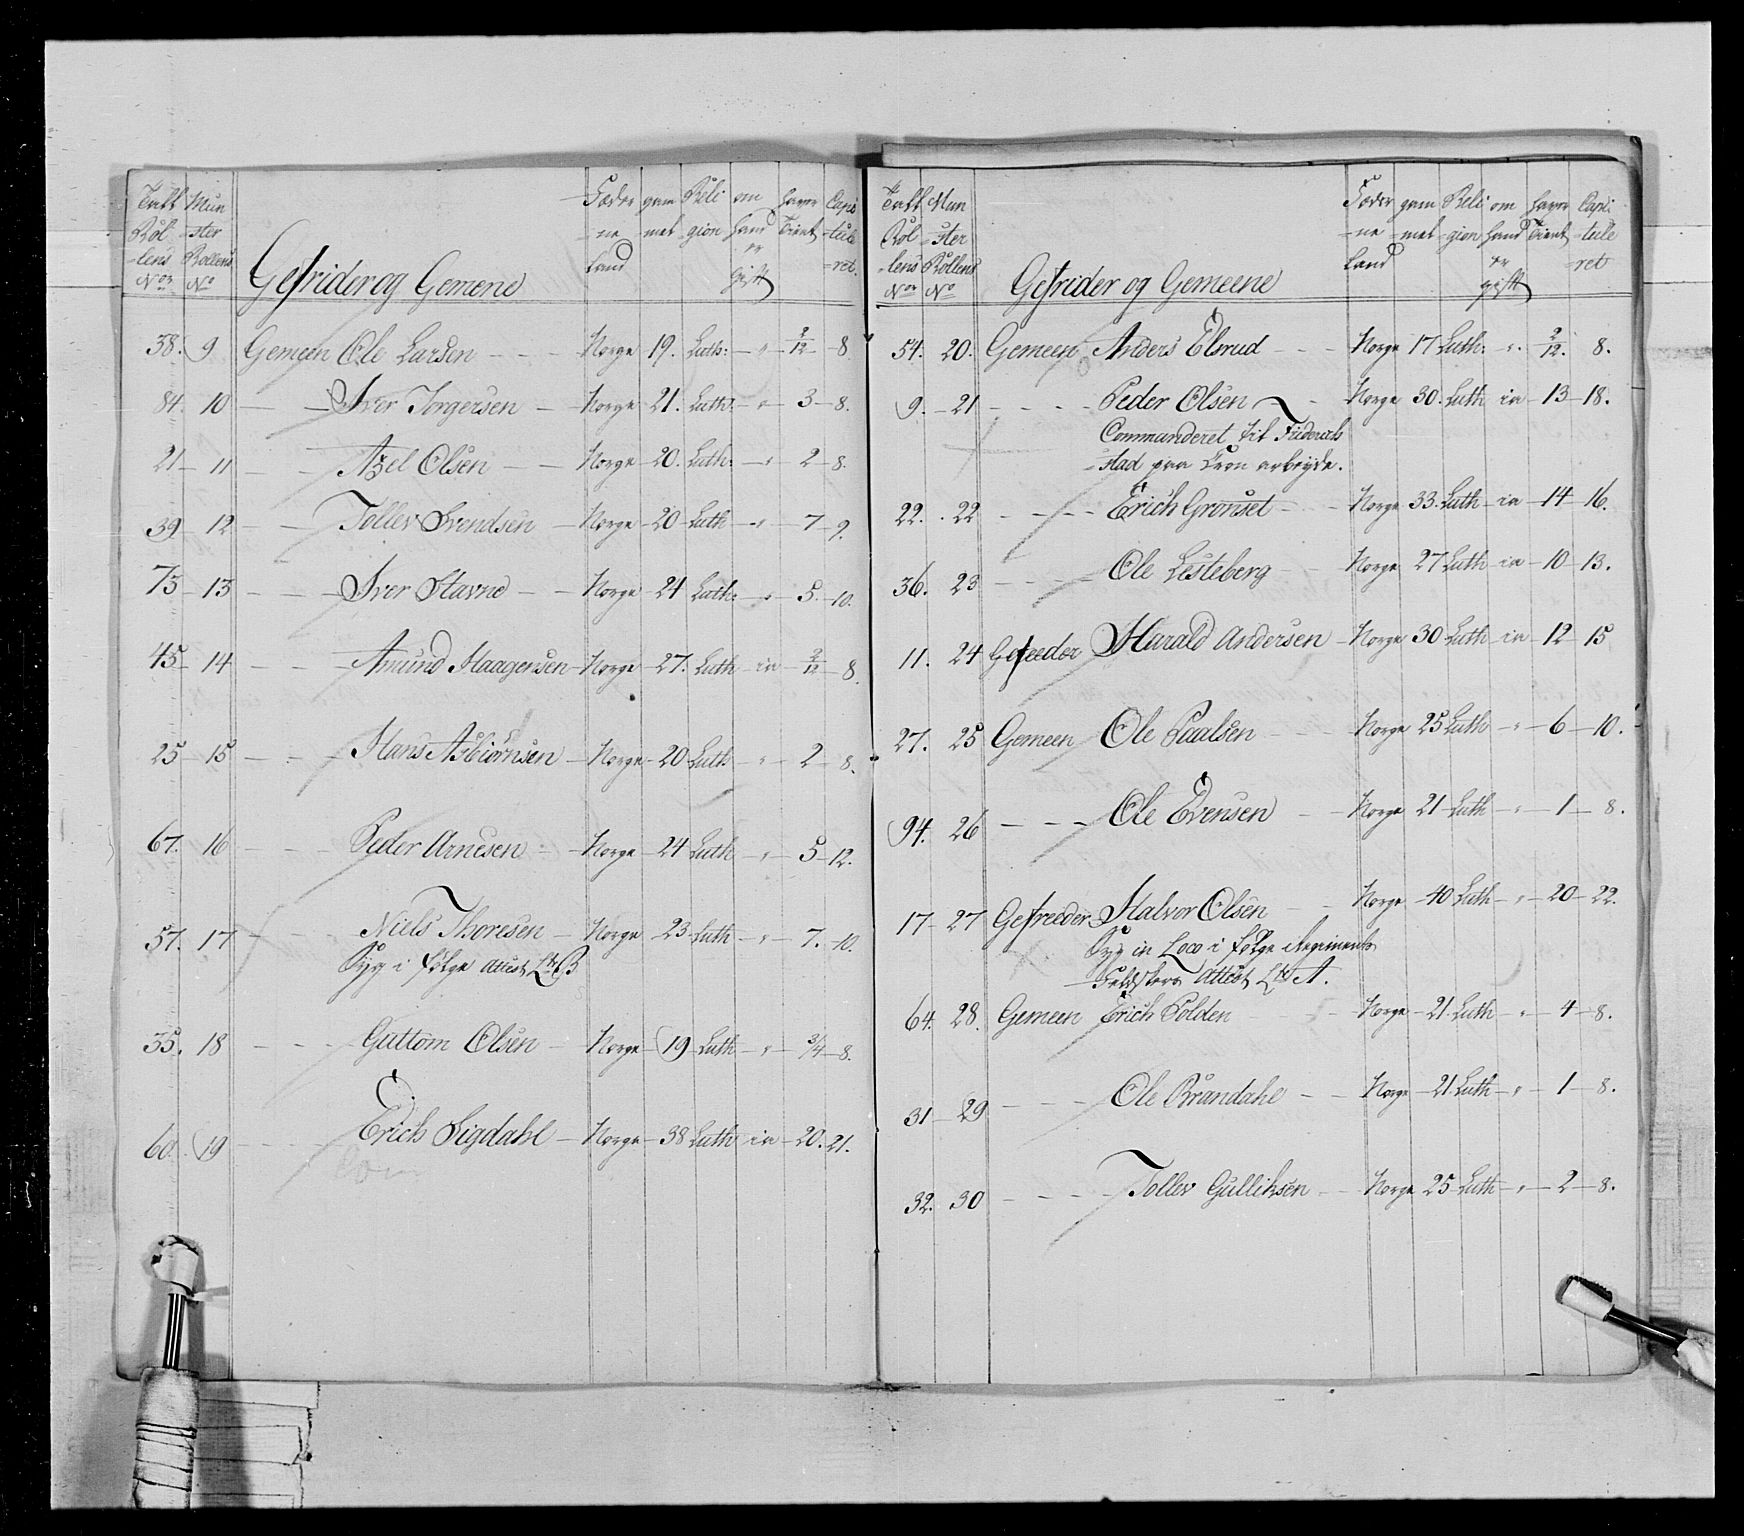 Taff Mun Føder gam Reli om haver Capi
Rol -ster -ne -met -gion hand Tient -tule
-lens Rollens Land er -ret.
Nor No Gefrider og Gemene Gift
38. 9 Gemeen Ole Larsen - - - Norge 19. Luth: - " - 2/12 - 8
84. 10 - - Iver Jorgersen - Norge 21. Luth: - " - 3 - 8.
21 - 11 - - Axel Olsen - - Norge 20. Luth: - " - 2 - 8.
39 - 12 - - Tollev Svendsen - Norge - 20 - Luth - " - 7 - 9.
73 - 13 - - - Iver Stavne - - Norge - 24 Luth: - " - 5 - 10.
45 - 14 - - - Amund Haagensen - Norge - 27. Luth - in - 2/12 - 8
25 - 15 - - - Hans Asbiørnsen - Norge - 20 - Luth - " - 2 - 8.
67. 16 - - - Peder Arnesen - Norge - 24 Luth - " - 5 - 12.
57. 17 - - - Niels Thoresen - Norge - 23 - Luth - " - 7. - 10.
Syg i følge attest Ltr B
35. 18 - - - Guttom Olsen - Norge - 19 - Luth - " - 3/4 - 8.
60. 19 - - - Erich Sigdahl - Norge - 38 Luth in - 20. 21.
Taff Mun Føder gam Reli om haver Capi
Rol -ster -ne -met -gion hand Tient -tule
-lens Rollens Land er -ret
Nor No Gefrider og Gemeene gift
54. 20. Gemeen Anders Elsrud - - Norge 17 Luth: " 2/12. 8.
9. - 21 - - - - Peder Olsen - Norge 30. Luth in - 13 - 18.
Commanderet til Friderich
-stad paa Cron arbeyde.
22. 22 - - - - Erich Grønset - Norge 33. Luth - in - 14 - 16.
36. 23 - - - - Ole Listeberg - - Norge 27 Luth in - 10 - 13.
11. 24 Gefreeder Harald Andersen - Norge 30 - Luth - in - 12 - 15
27. 25 Gemeen Ole Paalsen - - - Norge 25 Luth - " - 6 - 10.
94. 26 - - - Ole Evensen - - Norge - 21 - Luth - " - 1 - 8.
17 - 27 Gefreeder Halvor Olsen - - Norge - 40 Luth - " - 20 - 22.
Syg in Loco i følge Regiments
-Feldskers attest Ltr A.
64. 28. Gemeen Erich Solden - - Norge - 21. Luth - " - 4 - 8.
31 - 29 - - - Ole Brandahl - - Norge - 21. Luth - " - 1 - 8.
32. 30 - - - - Tollev Gulliksen - Norge - 25 - Luth - " - 2 - 8.